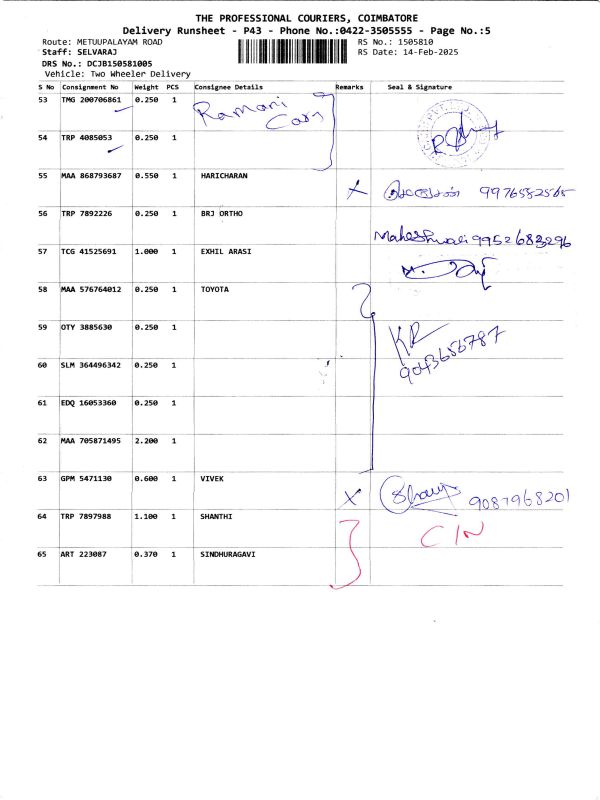 THE PROFESSIONAL COURIERS, COIMBATORE
Delivery Runsheet - P43 - Phone No.:0422-3505555 - Page No.:5
Route: METUUPALAYAM ROAD RS No.: 1505810
Staff: SELVARAJ RS Date: 14-Feb-2025
DRS No.: DCJB150581005
Vehicle: Two Wheeler Delivery
S No Consignment No Weight PCS Consignee Details Remarks Seal & Signature
53 TMG 200706861 0.250 1 Ramani
Cars
54 TRP 4085053 0.250 1
55 MAA 868793687 0.550 1 HARICHARAN X 9976582565
56 TRP 7892226 0.250 1 BRJ ORTHO
Maheshwari 9952683296
57 TCG 41525691 1.000 1 EXHIL ARASI
58 MAA 576764012 0.250 1 TOYOTA
59 OTY 3885630 0.250 1 KR
9043656787
60 SLM 364496342 0.250 1
61 EDQ 16053360 0.250 1
62 MAA 705871495 2.200 1
63 GPM 5471130 0.600 1 VIVEK X 9087968201
64 TRP 7897988 1.100 1 SHANTHI C/N
65 ART 223087 0.370 1 SINDHURAGAVI